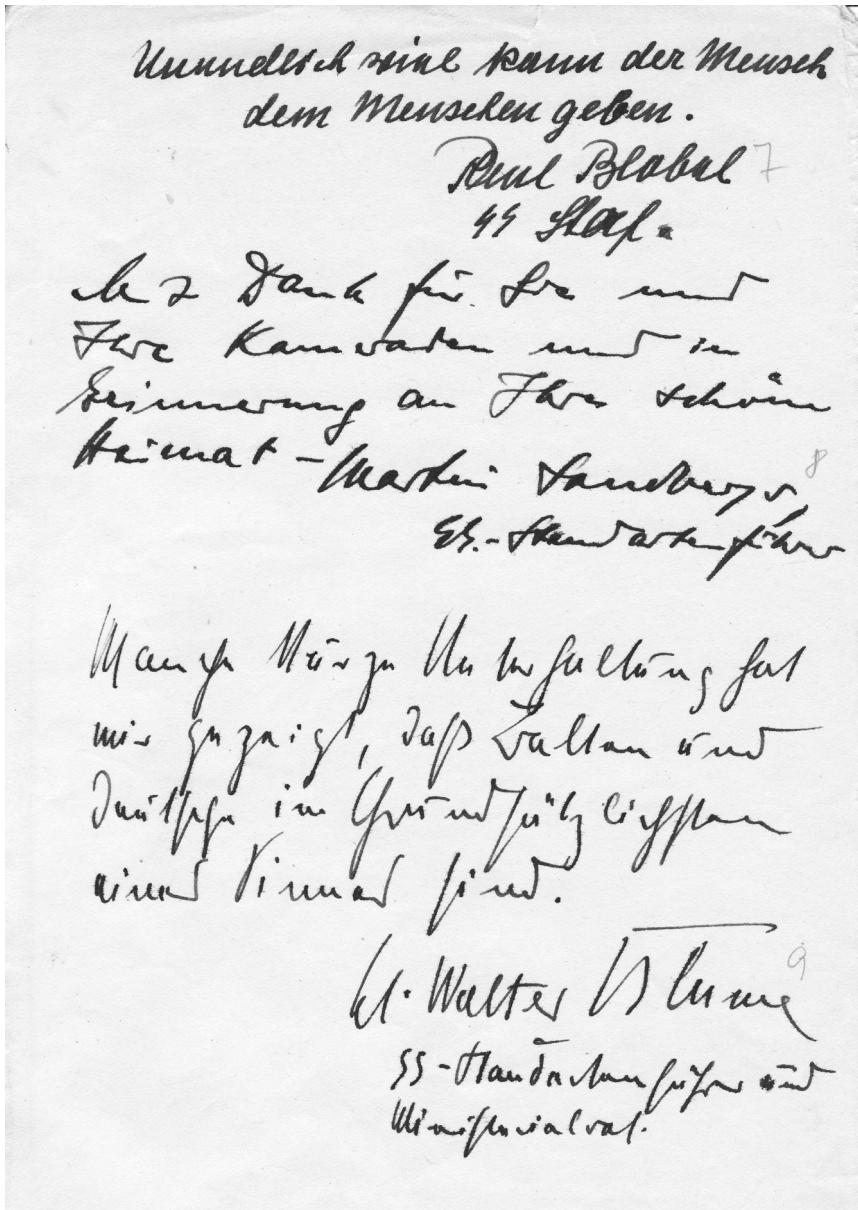 Unendlich viel kann der Mensch
dem Menschen geben.
Paul Blobel 7
SS Staf.
Dank für Sie und
Ihre Kameraden und in
Erinnerung an Ihre schöne
Heimat – Martin Sandberger, 8
SS.-Standartenführer
Manche Unterhaltung hat
mir gezeigt, daß Balten und
Deutsche im Grundsätzlichsten
eines Sinnes sind.
Walter Blume 9
SS-Standartenführer und
Ministerialrat.